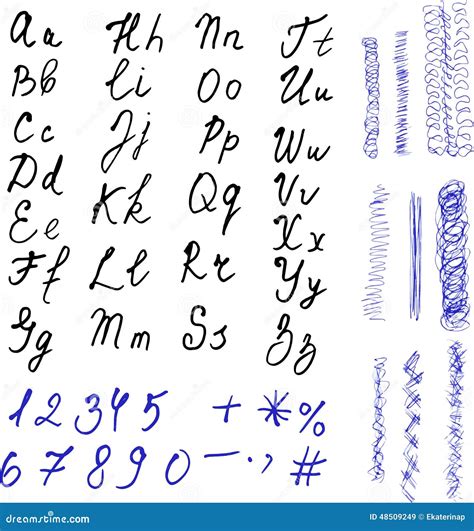 Aa Hh Nn Tt
Bb Ii Oo Uu
Cc Jj Pp Ww
Dd Kk Qq Vv
Ee Xx
Ff Ll Rr Yy
Gg Mm Ss Zz
1 2 3 4 5 + * %
6 7 8 9 0 - . , #
dreamstime.com ID 48509249 © Ekaterinap